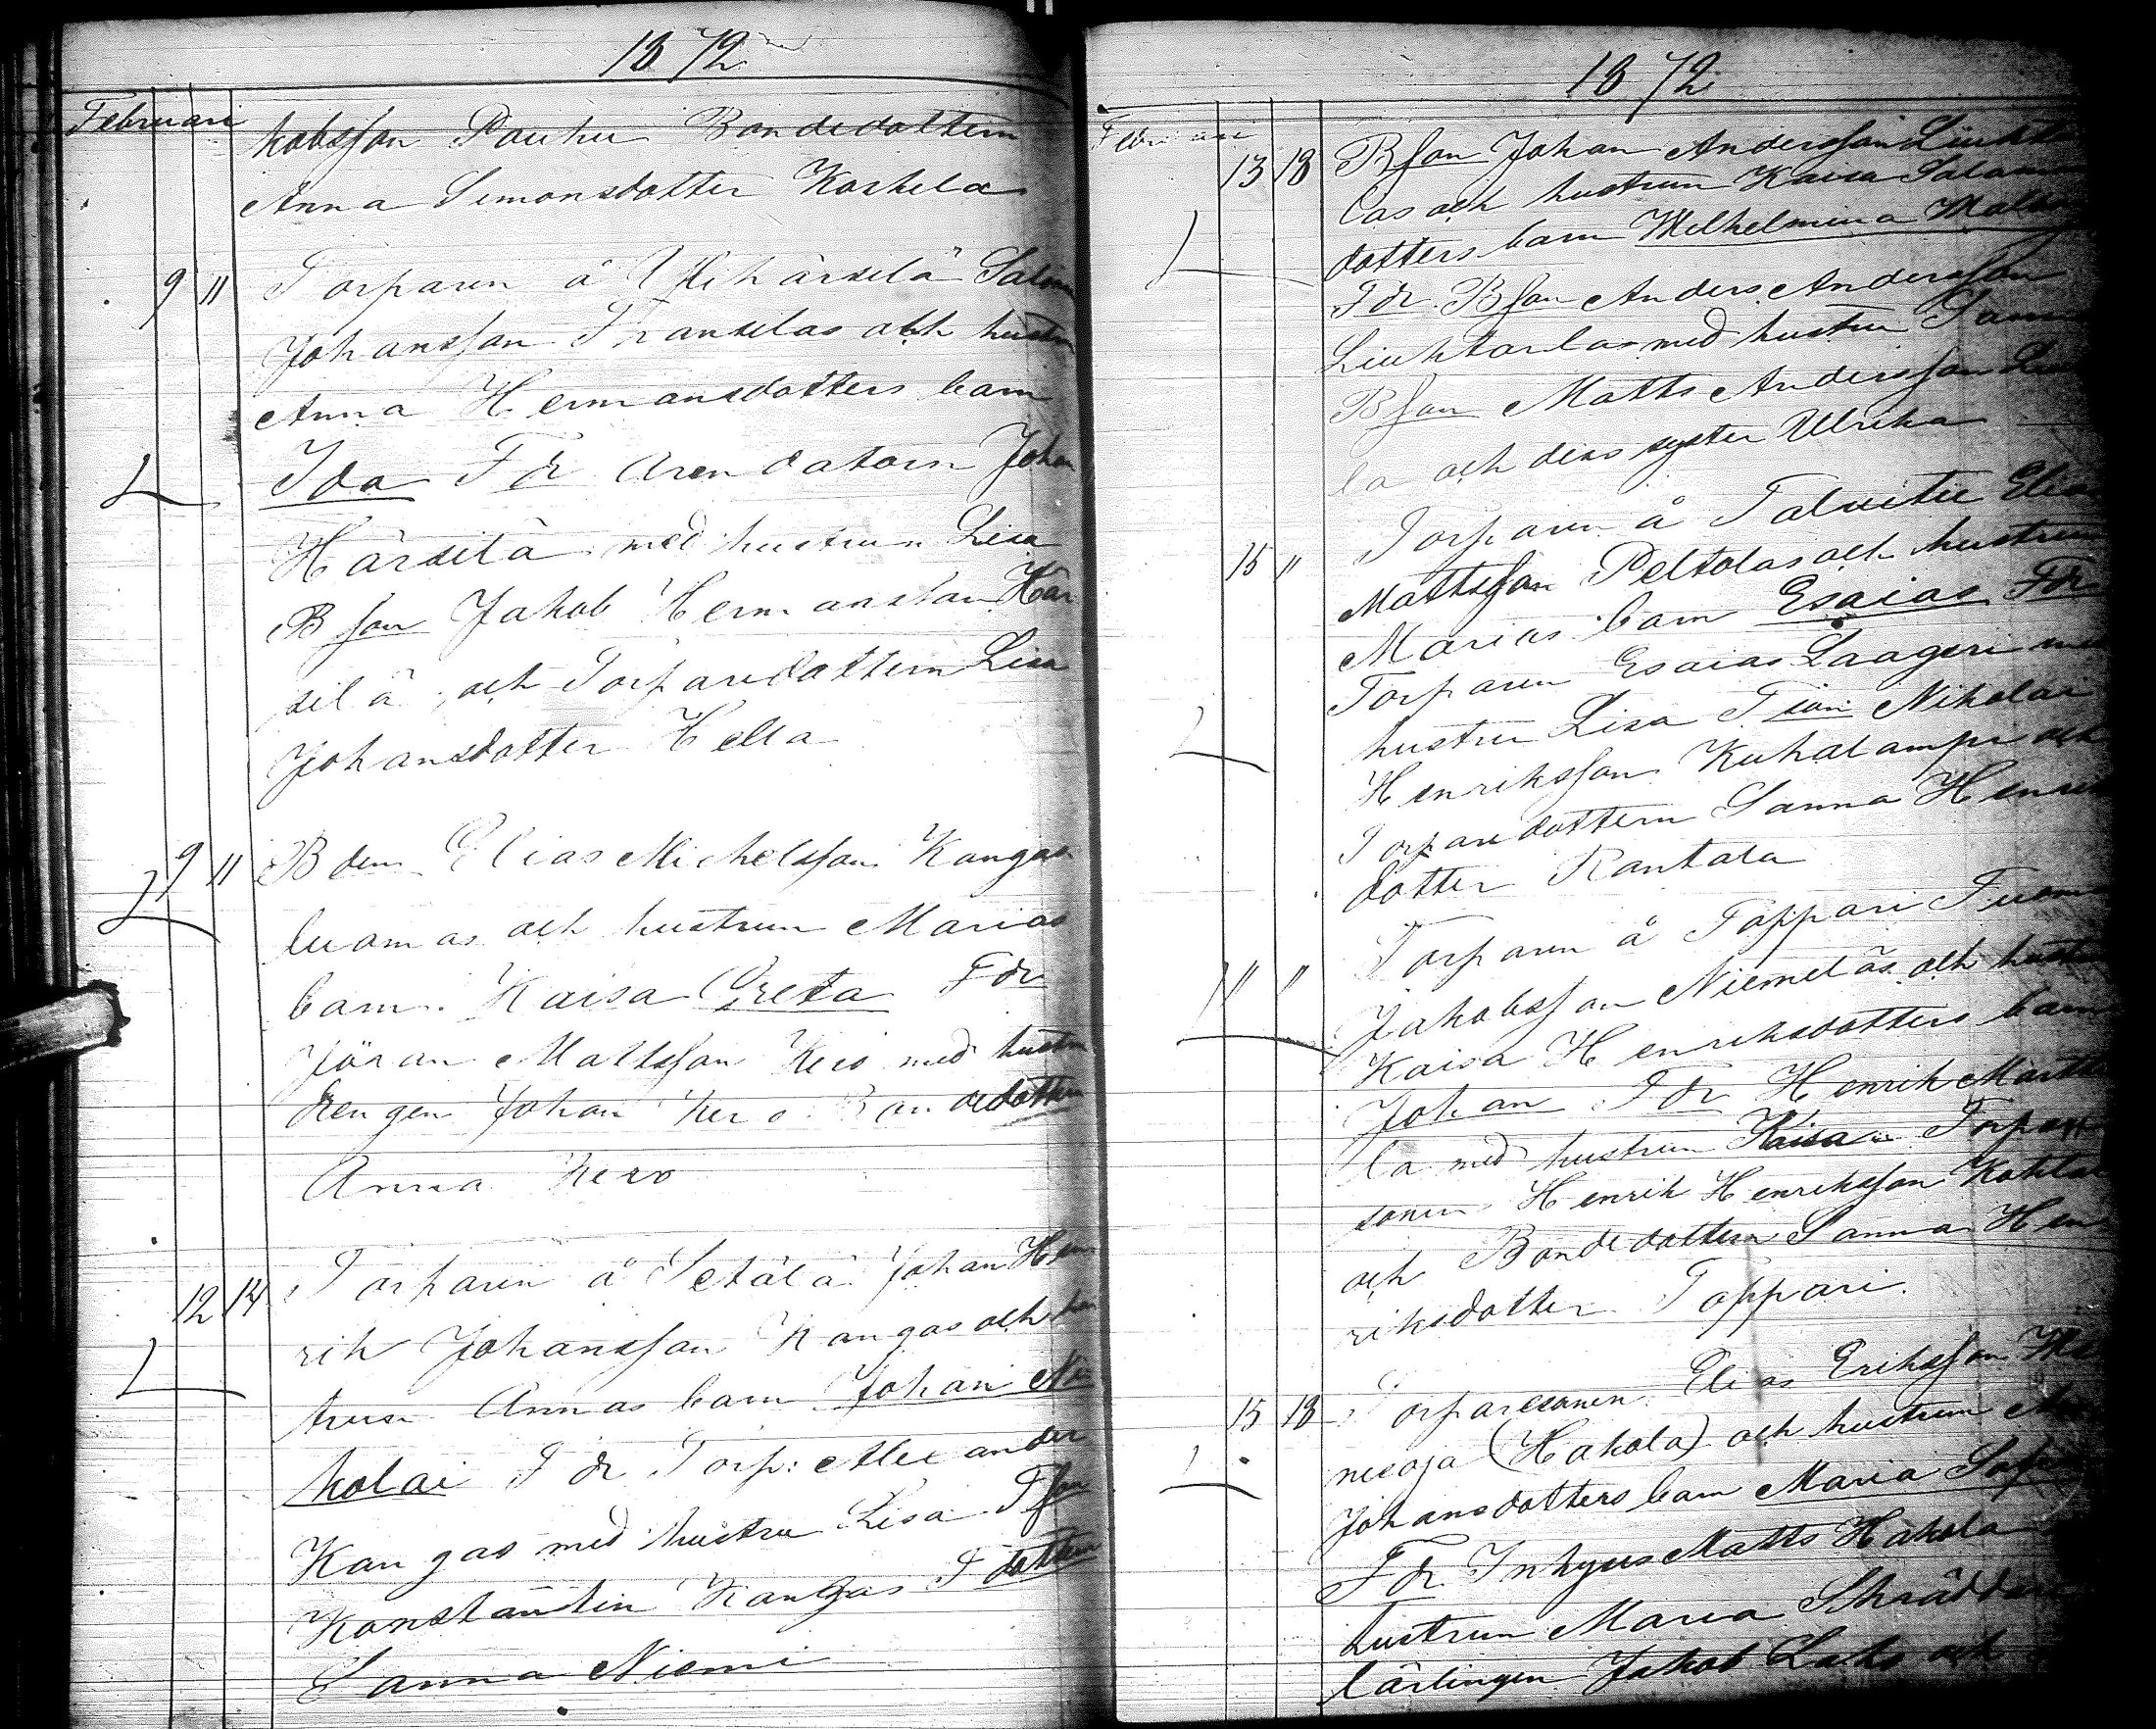 1872
Februari
kobsson Pouhu Bondedottern
Anna Simonsdotter Koskela
9 11 Torparen å Härsilä Salom
Johansson Franselas och hustru
Anna Hermansdotters barn
Ida Fdr Arendatorn Johan
Härsilä med hustrun Lisa
Bson Jakob Hermansson Här
silä, och Torparedottern Lisa
Johansdotter Hella
9 11 Bden Elias Michelsson Kangas
luomas och hustrun Marias
barn. Kaisa Greta Fdr
Jöran Mattsson Kero med hustru
drengen Johan Kero Bondedottern
Anna Kero
12 14 Torparen å Setälä Johan Hen
rik Johansson Kangas och hus
truns Annas barn Johan Ni
kolai Fdr Torp: Alexander
Kangas med hustru Lisa Tson
Konstantin Kangas Tdottern
Sanna Niemi
1872
Februari
13 18 Bson Johan Andersson Liukto
las och hustrun Kaisa Salom
dotters barn Wilhelmina Matilda
Fdr. Bson Anders Andersson
med hustru Sanna
Bson Matts Andersson
la och dess syster Ulrika
15 " Torparen å Talvitie Elias
Mattsson Peltolas och hustrun
Marias barn Esaias Fdr
Torparen Esaias Laageri med
hustru Lisa Tson Nikolai
Henriksson Kuhalampi och
Torparedottern Sanna Henriks
dotter Rantala
" " Torparen å Toppari Tuomas
Jakobsson Niemeläs och hustru
Kaisa Henriksdotters barn
Johan Fdr Henrik Marttila
la med hustrun Kaisa Torpare
sonen Henrik Henriksson
och Bondedottern Sanna Hen
riksdotter Toppari.
15 18 Torparesonen Elias Eriksson
nisoja (Hakola) och hustrun
Johansdotters barn Maria Sofia
Fdr Inhyses Matts Hakola
hustrun Maria Skräddare
lärlingen Jakob Laho och